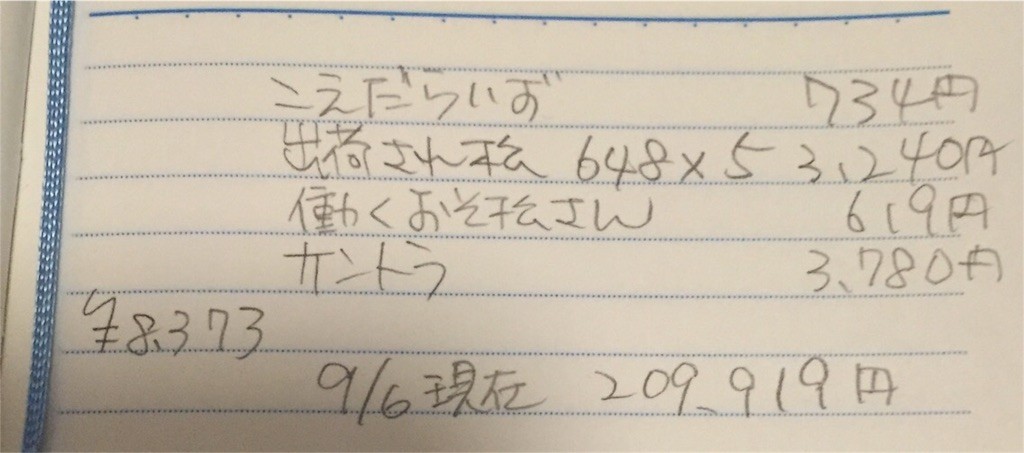 こえだらいず 734円
出荷され松 648×5 3,240円
働くおそ松さん 619円
サントラ 3,780円
¥8,373
9/6現在 209,919円